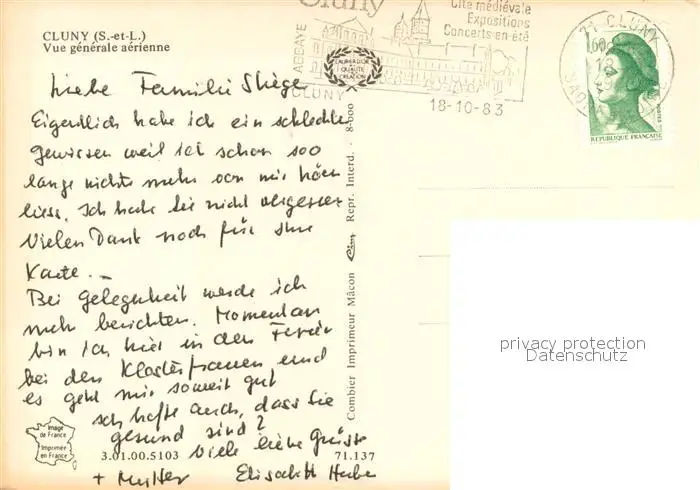 CLUNY (S.-et-L.)
Vue générale aérienne
Cluny
Cité médiévale
Expositions
Concerts en été
ABBAYE
CLUNY
18-10-83
71 CLUNY
1,60
REPUBLIQUE FRANÇAISE
LABEUR D'OR
QUALITÉ
CRÉATION
Liebe Familie
Eigentlich habe ich ein schlechtes
gewissen weil ich schon soo
lange nichts mehr von mir hören
liess. Ich habe Sie nicht vergessen
Vielen Dank noch für Ihre
Karte. –
Bei Gelegenheit werde ich
mehr berichten. Momentan
bin ich hier in den Ferien
bei den Klosterfrauen und
es geht mir soweit gut
ich hoffe auch, dass Sie
gesund sind?
Viele liebe Grüsse
+ Mutter Elisabeth
Combier Imprimeur Mâcon Cim Repr. Interd. - 8-000
Image
de France
Imprimée
en France
3.01.00.5103
71.137
privacy protection
Datenschutz